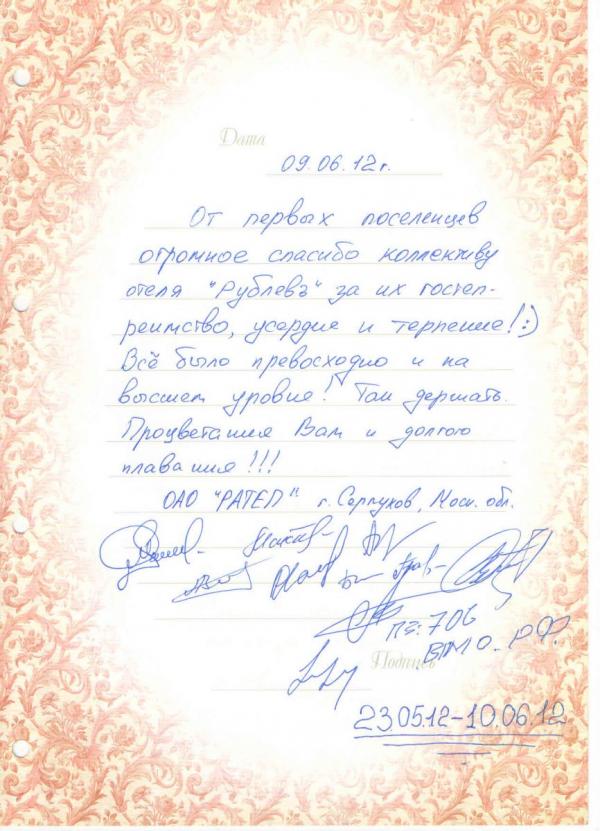 Дата
09.06.12г.
От первых поселенцев
огромное спасибо коллективу
отеля "Рублевъ" за их гостеп-
реимство, усердие и терпение! :)
Всё было превосходно и на
высшем уровне! Так держать.
Процветания Вам и долгого
плавания!!!
ОАО "РАТЕП" г. Серпухов, Моск. обл.
ПЗ: 706
ВП МО. РФ.
Подпись
23.05.12-10.06.12